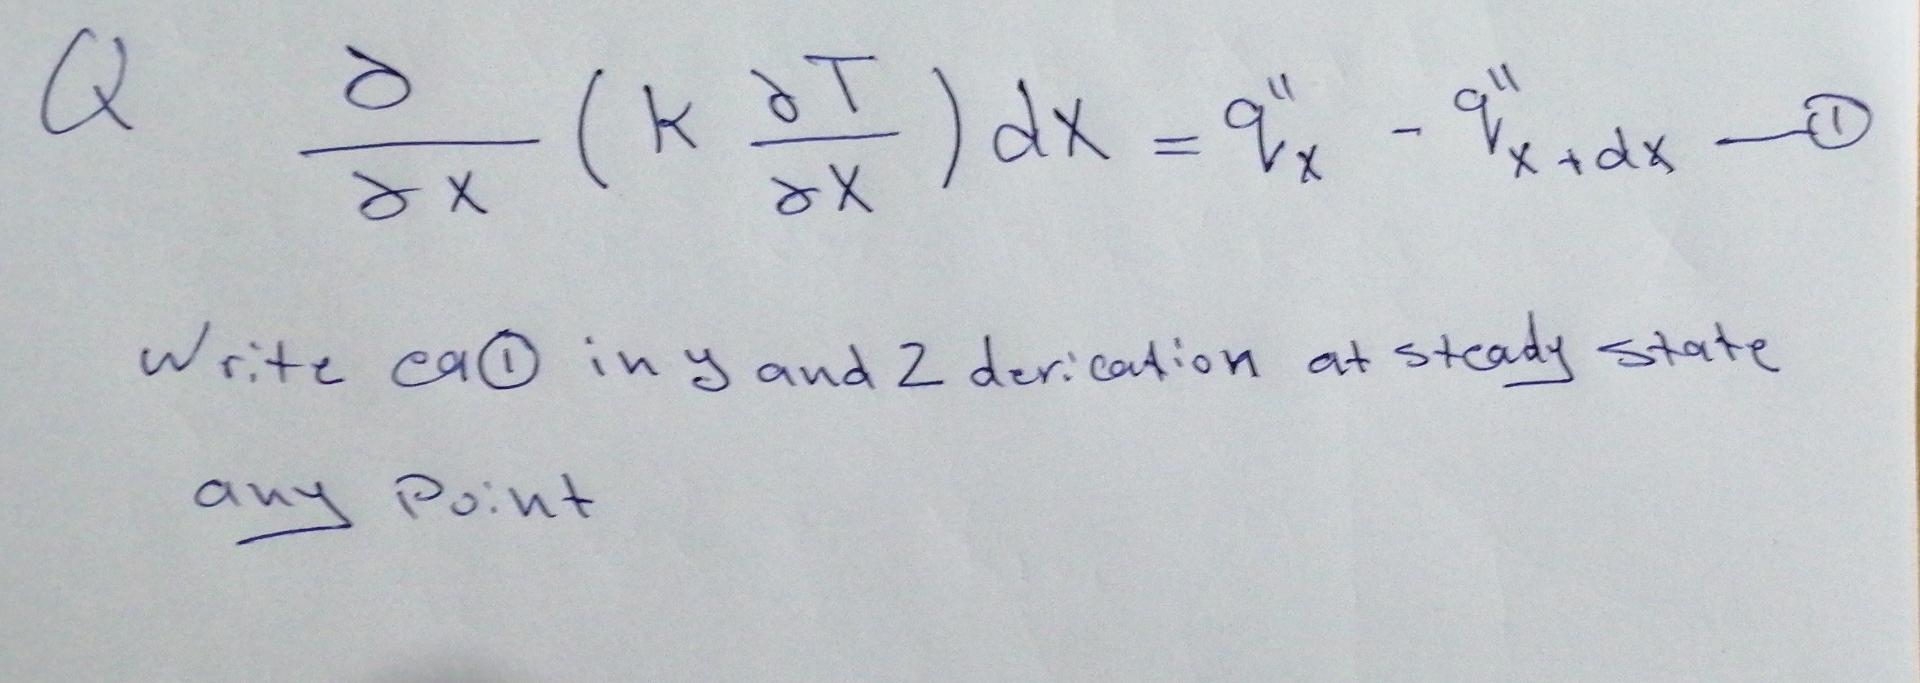 Q ∂/∂x (k ∂T/∂x) dx = q''x - q''x+dx —①
Write eq① in y and z derication at steady state
any Point